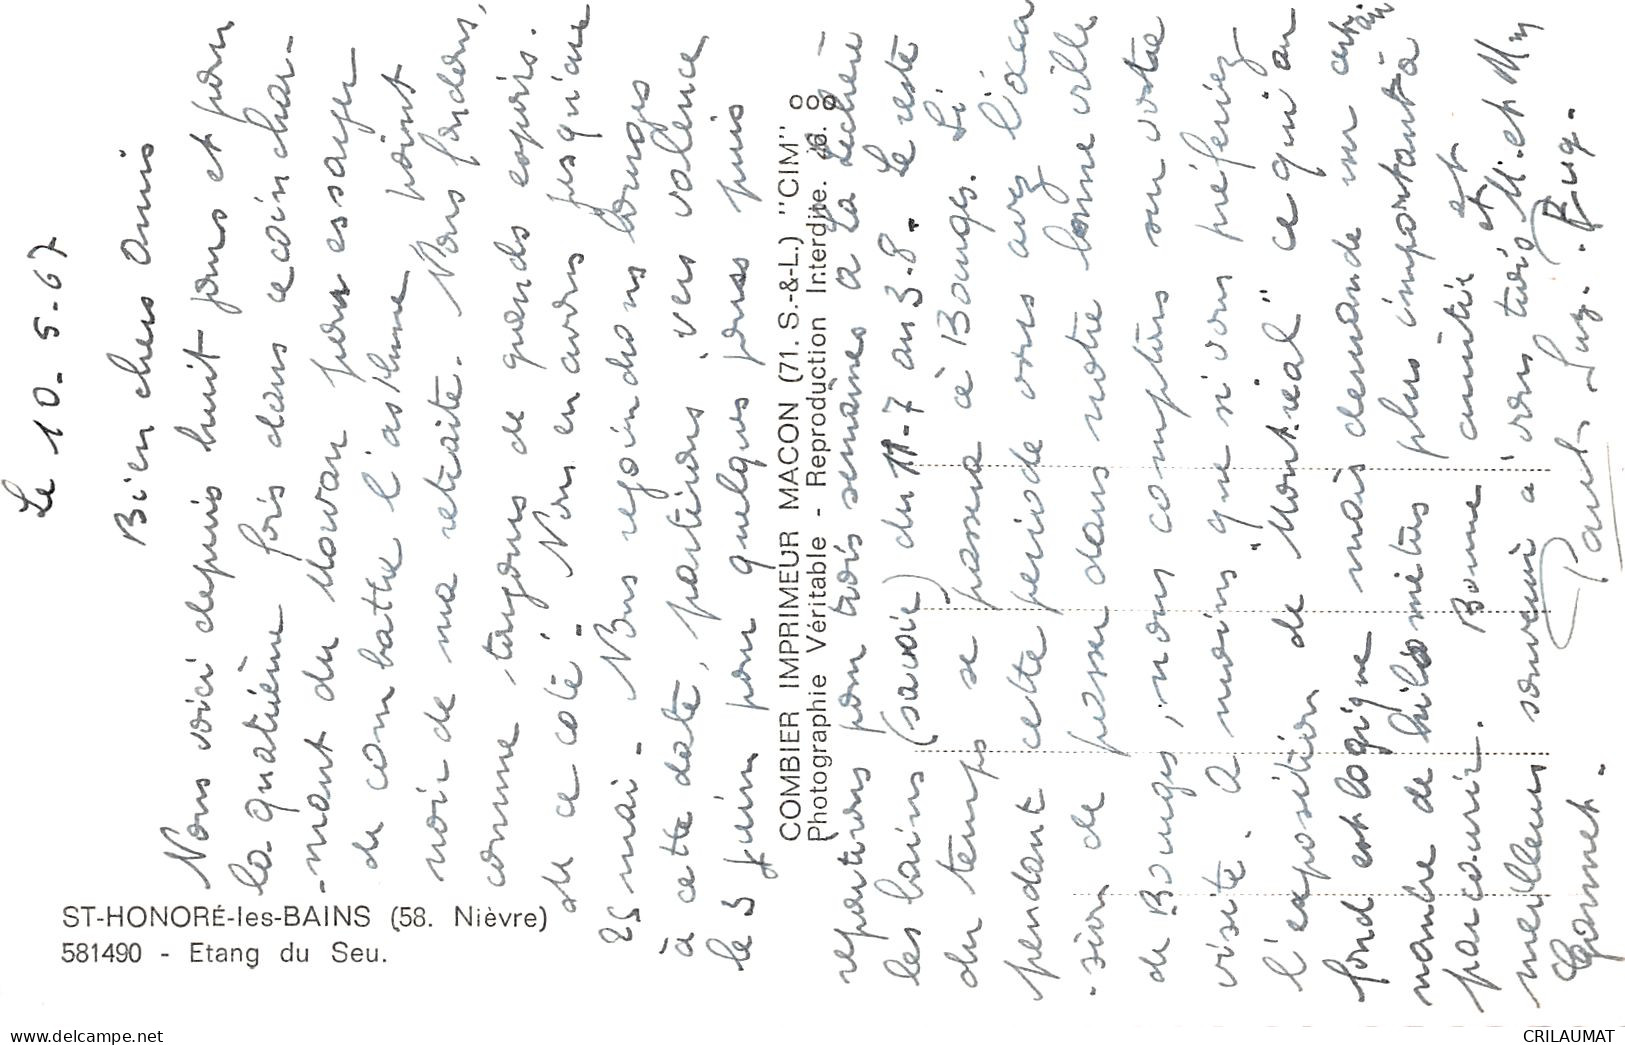 Le 10-5-67
Bien chers amis
Nous voici depuis huit jours et pour
la quatrième fois dans ce coin char-
-mant du Morvan pour essayer
de combattre l'asthme point
noir de ma retraite. Nous fondons,
comme toujours de grands espoirs.
de ce coté! Nous en avons jusqu'au
25 mai. Nous rejoindrons Bourges
à cette date, partirons vers Valence
le 3 juin pour quelques jours puis
repartirons pour trois semaines à La Léchère
les bains (savoir) du 11-7 au 3-8. Le reste
du temps se passera à Bourges. Si
pendant cette période vous avez l'occa
-sion de passer dans notre bonne ville
de Bourges, nous comptons sur votre
visite. A moins que si vous préfériez
l'exposition de "Montréal" ce qui au
fond est logique mais demande un certain
nombre de kilomètres plus important à
parcourir. Bonne amitié et
meilleurs souvenirs à vous trois M. et Mm
Garnet.
ST-HONORÉ-les-BAINS (58. Nièvre)
581490 - Etang du Seu.
COMBIER IMPRIMEUR MACON (71. S.-&-L.) "CIM"
Photographie Véritable - Reproduction Interdite.
delcampe.net
CRILAUMAT